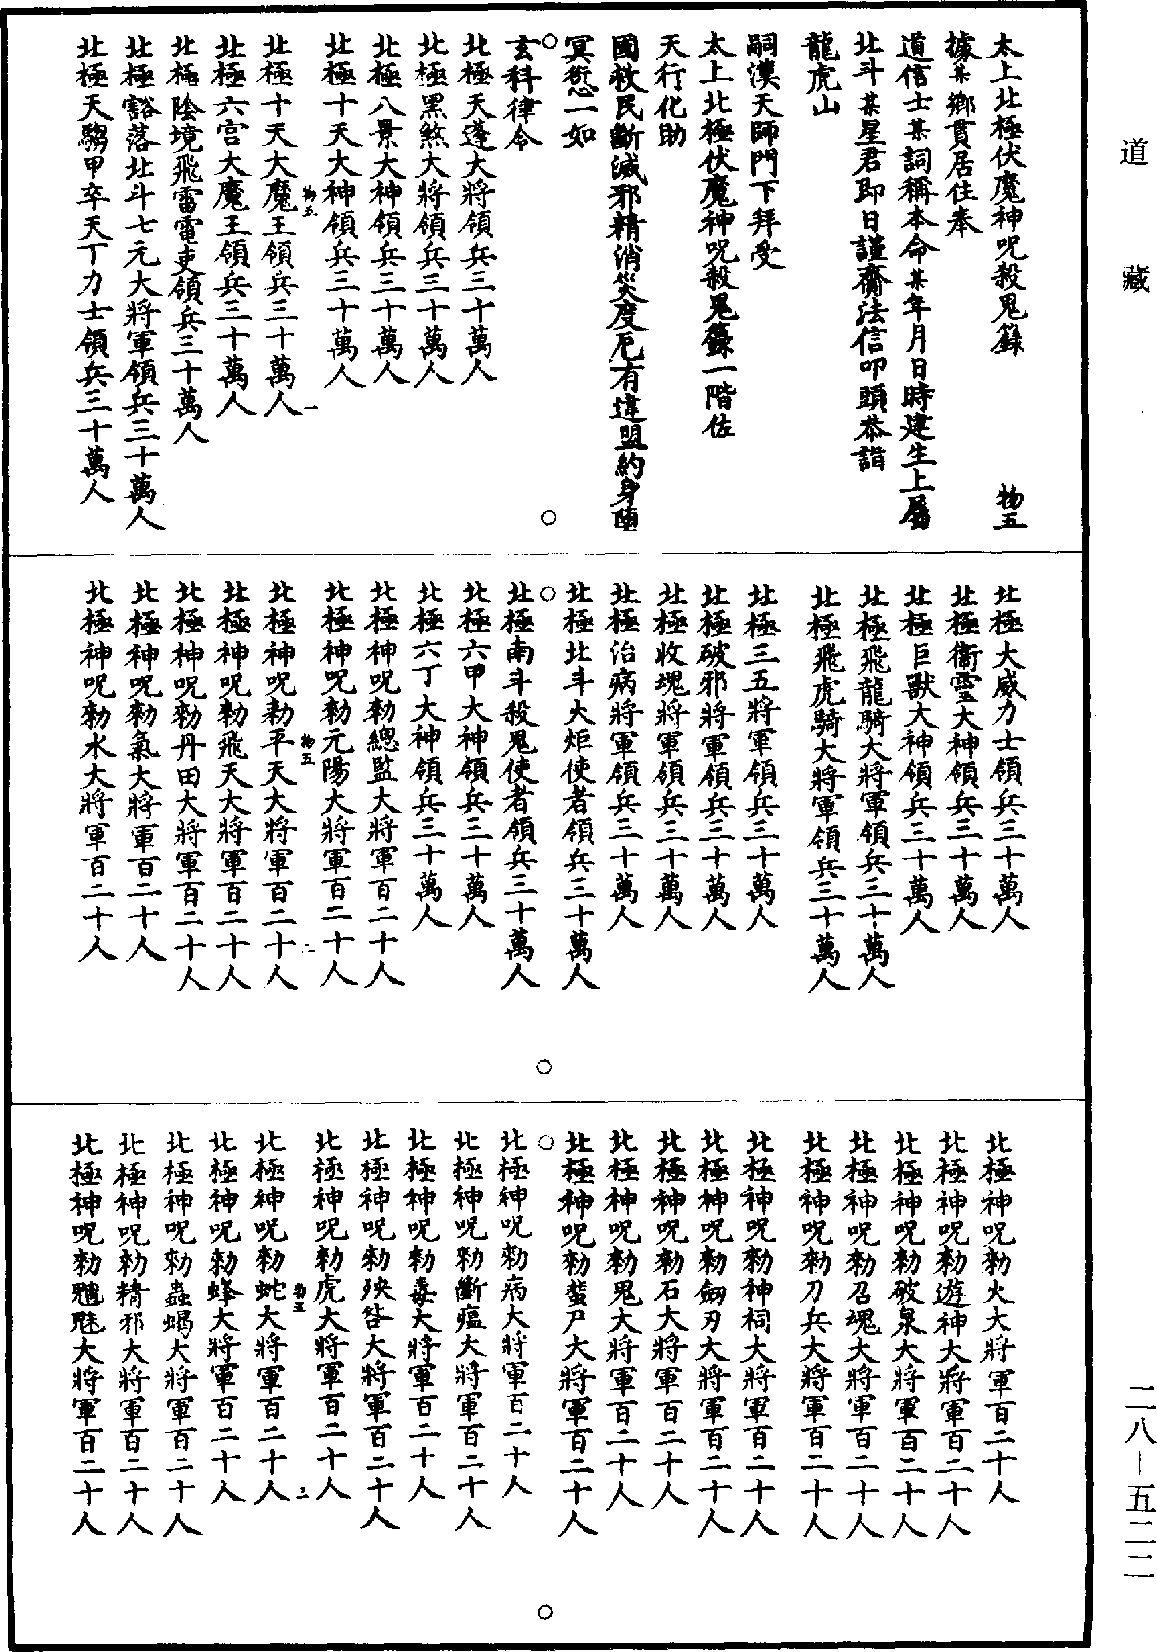 道藏
太上北極伏魔神呪殺鬼籙
物五
據某鄉貫居住奉
道信士某詞稱本命某年月日時建生上屬
北斗某星君即日謹齋法信叩頭恭詣
龍虎山
嗣漢天師門下拜受
太上北極伏魔神呪殺鬼籙一階佐
天行化助
國救民斷滅邪精消災度厄有違盟約身墮
冥愆一如
玄科律令
北極天蓬大將領兵三十萬人
北極黑煞大將領兵三十萬人
北極八景大神領兵三十萬人
北極十天大神領兵三十萬人
物五
一
北極十天大魔王領兵三十萬人
北極六宮大魔王領兵三十萬人
北極陰境飛雷雷吏領兵三十萬人
北極豁落北斗七元大將軍領兵三十萬人
北極天騶甲卒天丁力士領兵三十萬人
北極大威力士領兵三十萬人
北極衛靈大神領兵三十萬人
北極巨獸大神領兵三十萬人
北極飛龍騎大將軍領兵三十萬人
北極飛虎騎大將軍領兵三十萬人
北極三五將軍領兵三十萬人
北極破邪將軍領兵三十萬人
北極收魂將軍領兵三十萬人
北極治病將軍領兵三十萬人
北極北斗火炬使者領兵三十萬人
北極南斗殺鬼使者領兵三十萬人
北極六甲大神領兵三十萬人
北極六丁大神領兵三十萬人
北極神呪勑總監大將軍百二十人
北極神呪勑元陽大將軍百二十人
物五
二
北極神呪勑平天大將軍百二十人
北極神呪勑飛天大將軍百二十人
北極神呪勑丹田大將軍百二十人
北極神呪勑氣大將軍百二十人
北極神呪勑水大將軍百二十人
北極神呪勑火大將軍百二十人
北極神呪勑遊神大將軍百二十人
北極神呪勑破泉大將軍百二十人
北極神呪勑召魂大將軍百二十人
北極神呪勑刀兵大將軍百二十人
北極神呪勑神祠大將軍百二十人
北極神呪勑劒刃大將軍百二十人
北極神呪勑石大將軍百二十人
北極神呪勑鬼大將軍百二十人
北極神呪勑蜚尸大將軍百二十人
北極神呪勑病大將軍百二十人
北極神呪勑斷瘟大將軍百二十人
北極神呪勑毒大將軍百二十人
北極神呪勑殃咎大將軍百二十人
北極神呪勑虎大將軍百二十人
物五
三
北極神呪勑蛇大將軍百二十人
北極神呪勑蜂大將軍百二十人
北極神呪勑蟲蝎大將軍百二十人
北極神呪勑精邪大將軍百二十人
北極神呪勑魑魅大將軍百二十人
二八—五二二